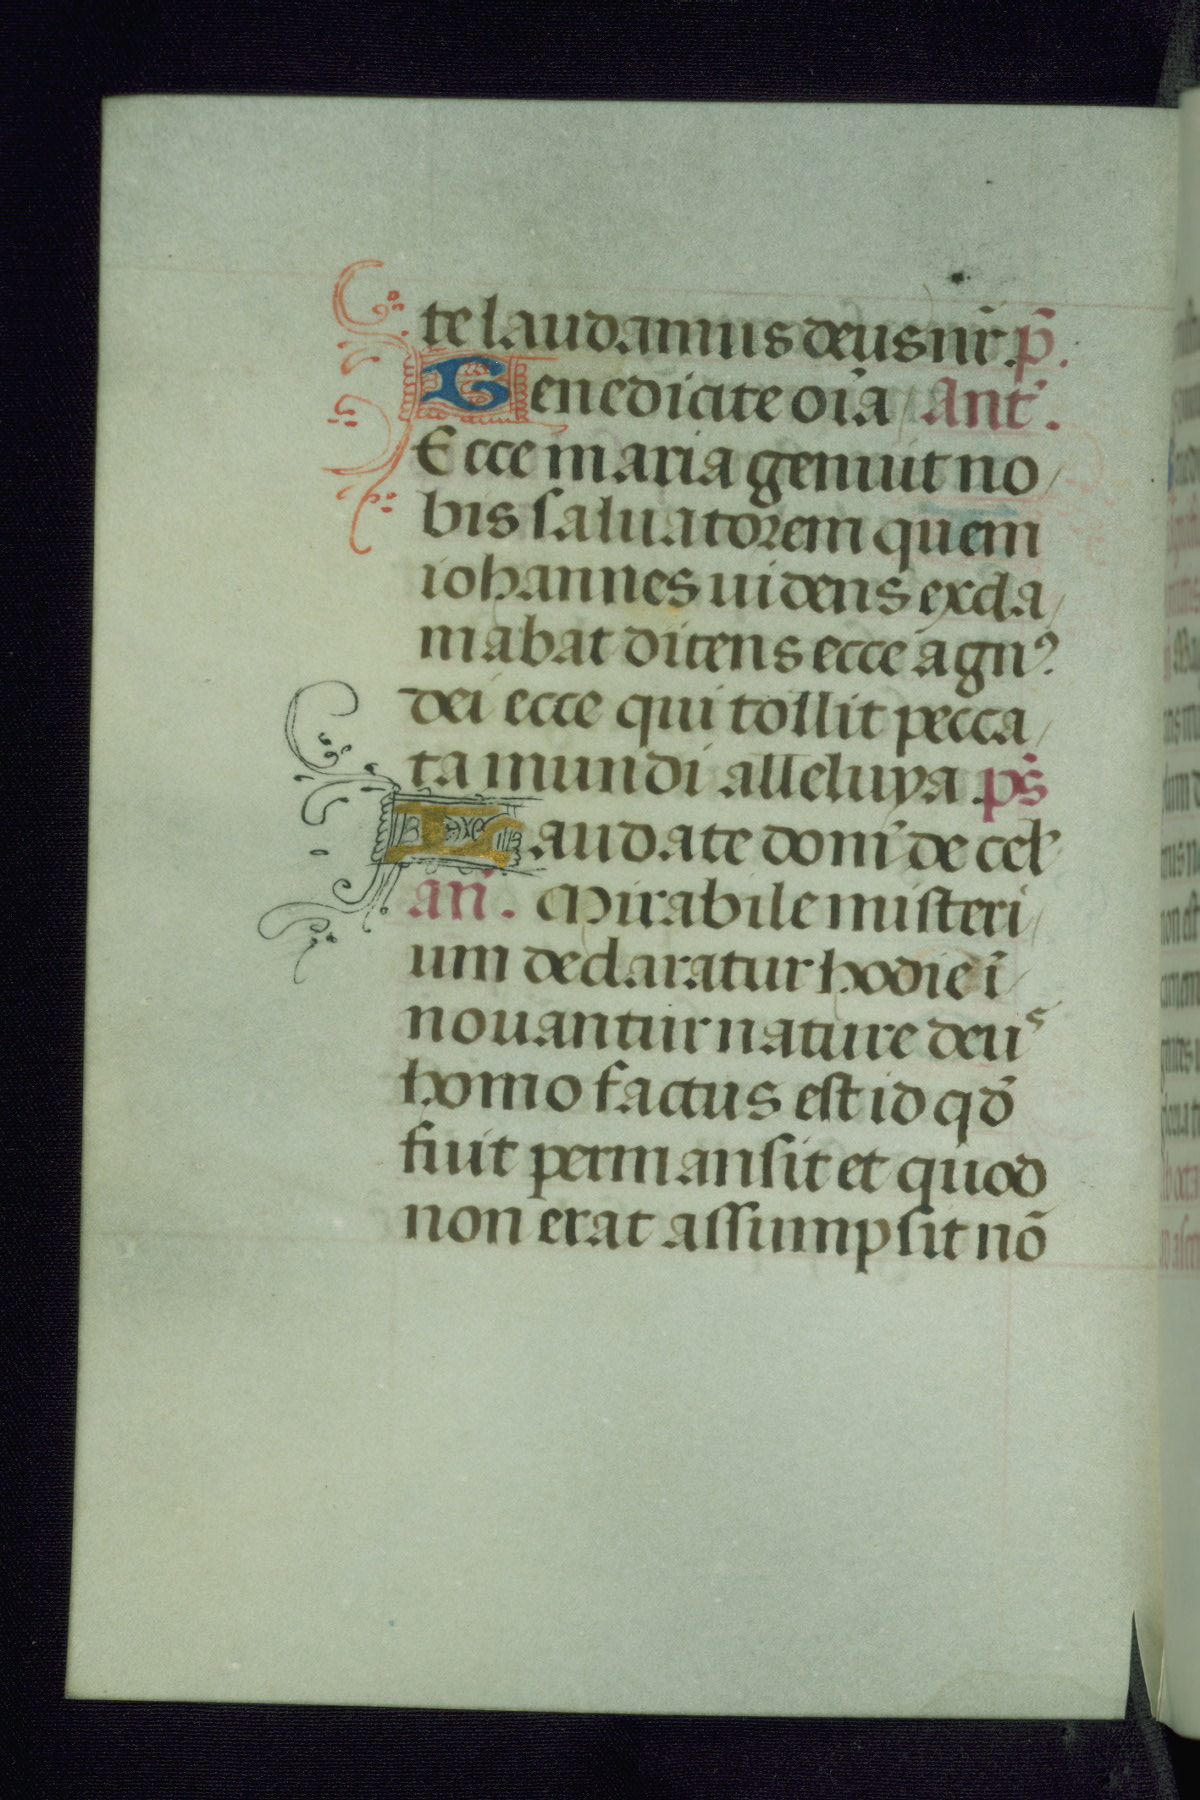 te laudamus deus nr̄. p̄.
Benedicite oīa Ant̄.
Ecce maria genuit no
bis saluatorem quem
iohannes uidens excla
mabat dicens ecce agnꝰ
dei ecce qui tollit pecca
ta mundi alleluya ps̄
Laudate dom̄ de cel
an̄. Mirabile misteri
um declaratur hodie ī
nouantur nature deus
homo factus est id qd̄
fuit permansit et quod
non erat assumpsit nō